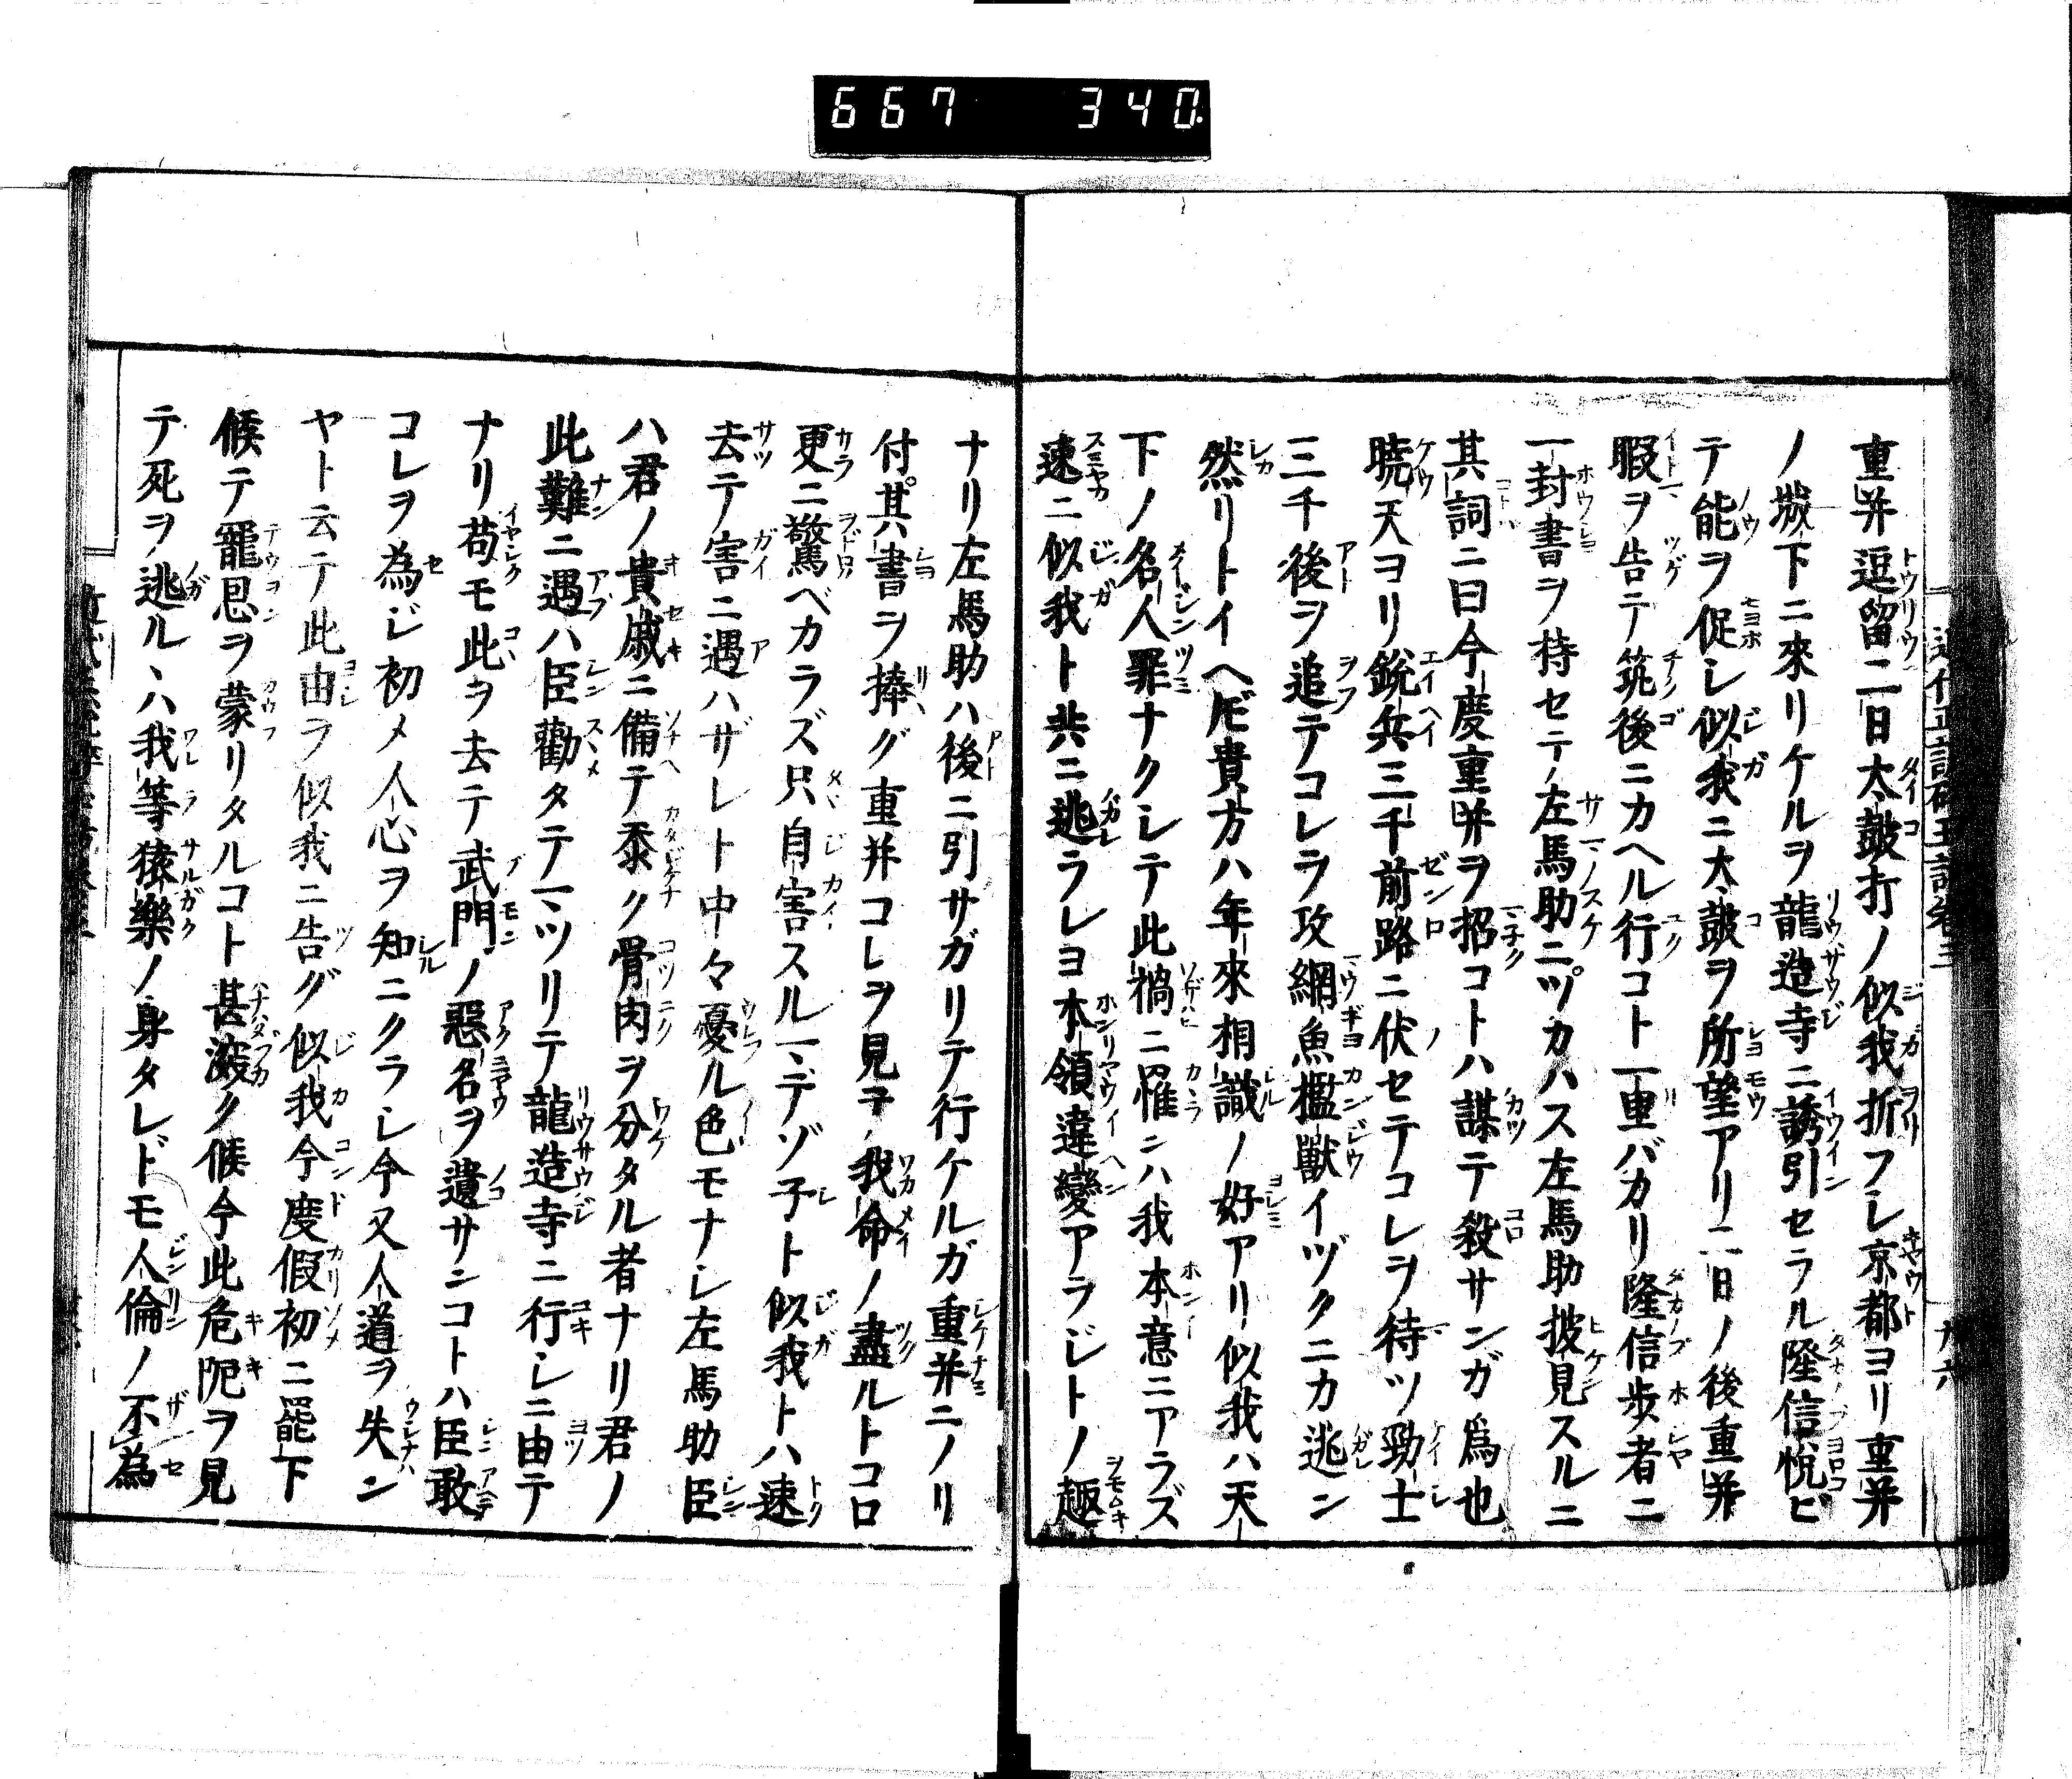 667 340
重并逗留二日太鼓打ノ似我折フシ京都ヨリ重并
ノ城下ニ來リケルヲ龍造寺ニ誘引セラル隆信悦ビ
テ能ヲ促シ似我ニ大鼓ヲ所望アリ二日ノ後重并
暇ヲ告テ筑後ニカヘル行コト一里バカリ隆信歩者ニ
一封書ヲ持セテ左馬助ニツカハス左馬助披見スルニ
其詞ニ曰今度重并ヲ招コトハ謀テ殺サンガ爲也
曉天ヨリ銳兵三千前路ニ伏セテコレヲ待ツ勁士
三千後ヲ追テコレヲ攻網魚檻獸イヅクニカ逃ン
然リトイヘ𪜈貴方ハ年來相識ノ好アリ似我ハ天
下ノ名人罪ナクシテ此禍ニ罹ンハ我本意ニアラズ
速ニ似我ト共ニ逃ラレヨ本領違變アラジトノ趣
ナリ左馬助ハ後ニ引サガリテ行ケルガ重并ニノリ
付其書ヲ捧グ重并コレヲ見テ我命ノ盡ルトコロ
更ニ驚ベカラズ只自害スルマデゾ子ト似我トハ速
去テ害ニ遇ハザレト中々憂ル色モナシ左馬助臣
ハ君ノ貴戚ニ備テ忝ク骨肉ヲ分タル者ナリ君ノ
此難ニ遇ハ臣勸タテマツリテ龍造寺ニ行シニ由テ
ナリ苟モ此ヲ去テ武門ノ惡名ヲ遺サンコトハ臣敢
コレヲ為ジ初メ人心ヲ知ニクラシ今又人道ヲ失ン
ヤト云テ此由ヲ似我ニ告グ似我今度假初ニ罷下
候テ寵恩ヲ蒙リタルコト甚深ク候今此危阨ヲ見
テ死ヲ逃ルヽハ我等猿樂ノ身タレドモ人倫ノ不為